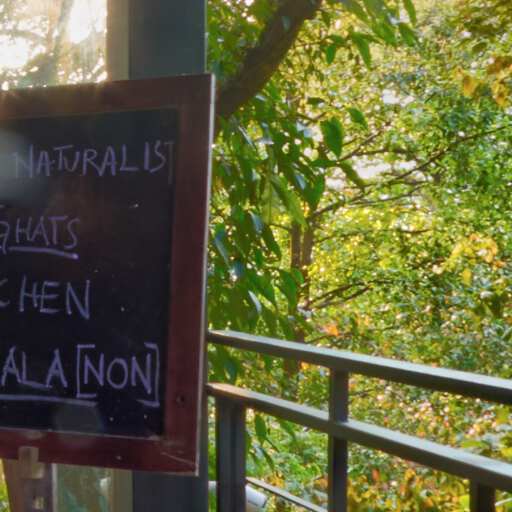 NATURALIST
GHATS
CHEN
ALA [NON]